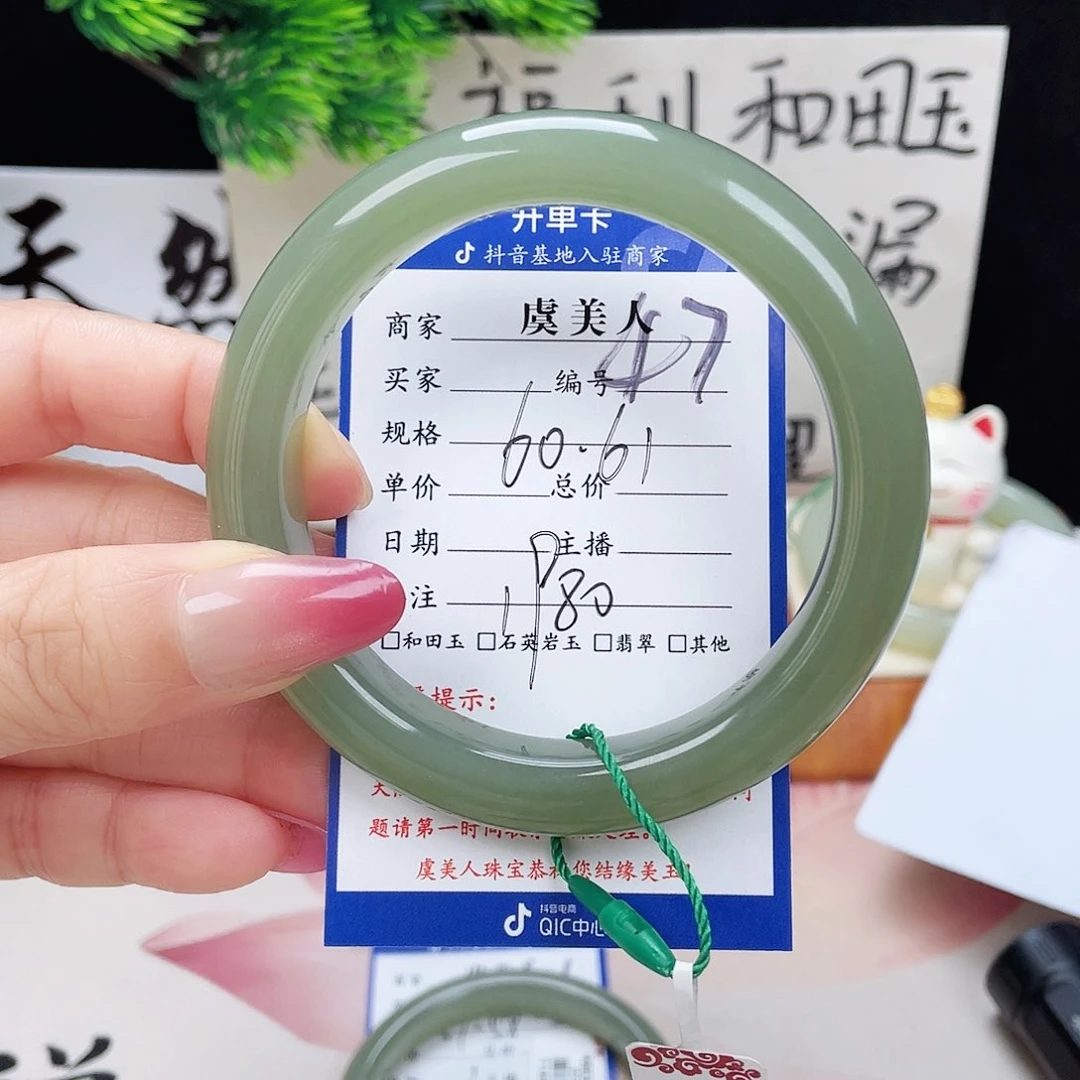 福利和田玉
天然
漏
升单卡
抖音基地入驻商家
商家 虞美人
买家 编号 47
规格 60.61
单价 总价
日期 主播
注 1P80
□和田玉 □石英岩玉 □翡翠 □其他
提示:
题请第一时间
虞美人珠宝恭 您结缘美玉
抖音电商
QIC中心